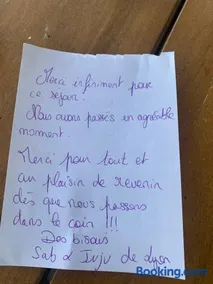 Merci infiniment pour
ce séjour.
Nous avons passés un agréable
moment.
Merci pour tout et
au plaisir de revenir
dès que nous passons
dans le coin !!!
Des bisous
Sab & Juju de Lyon
Booking.com